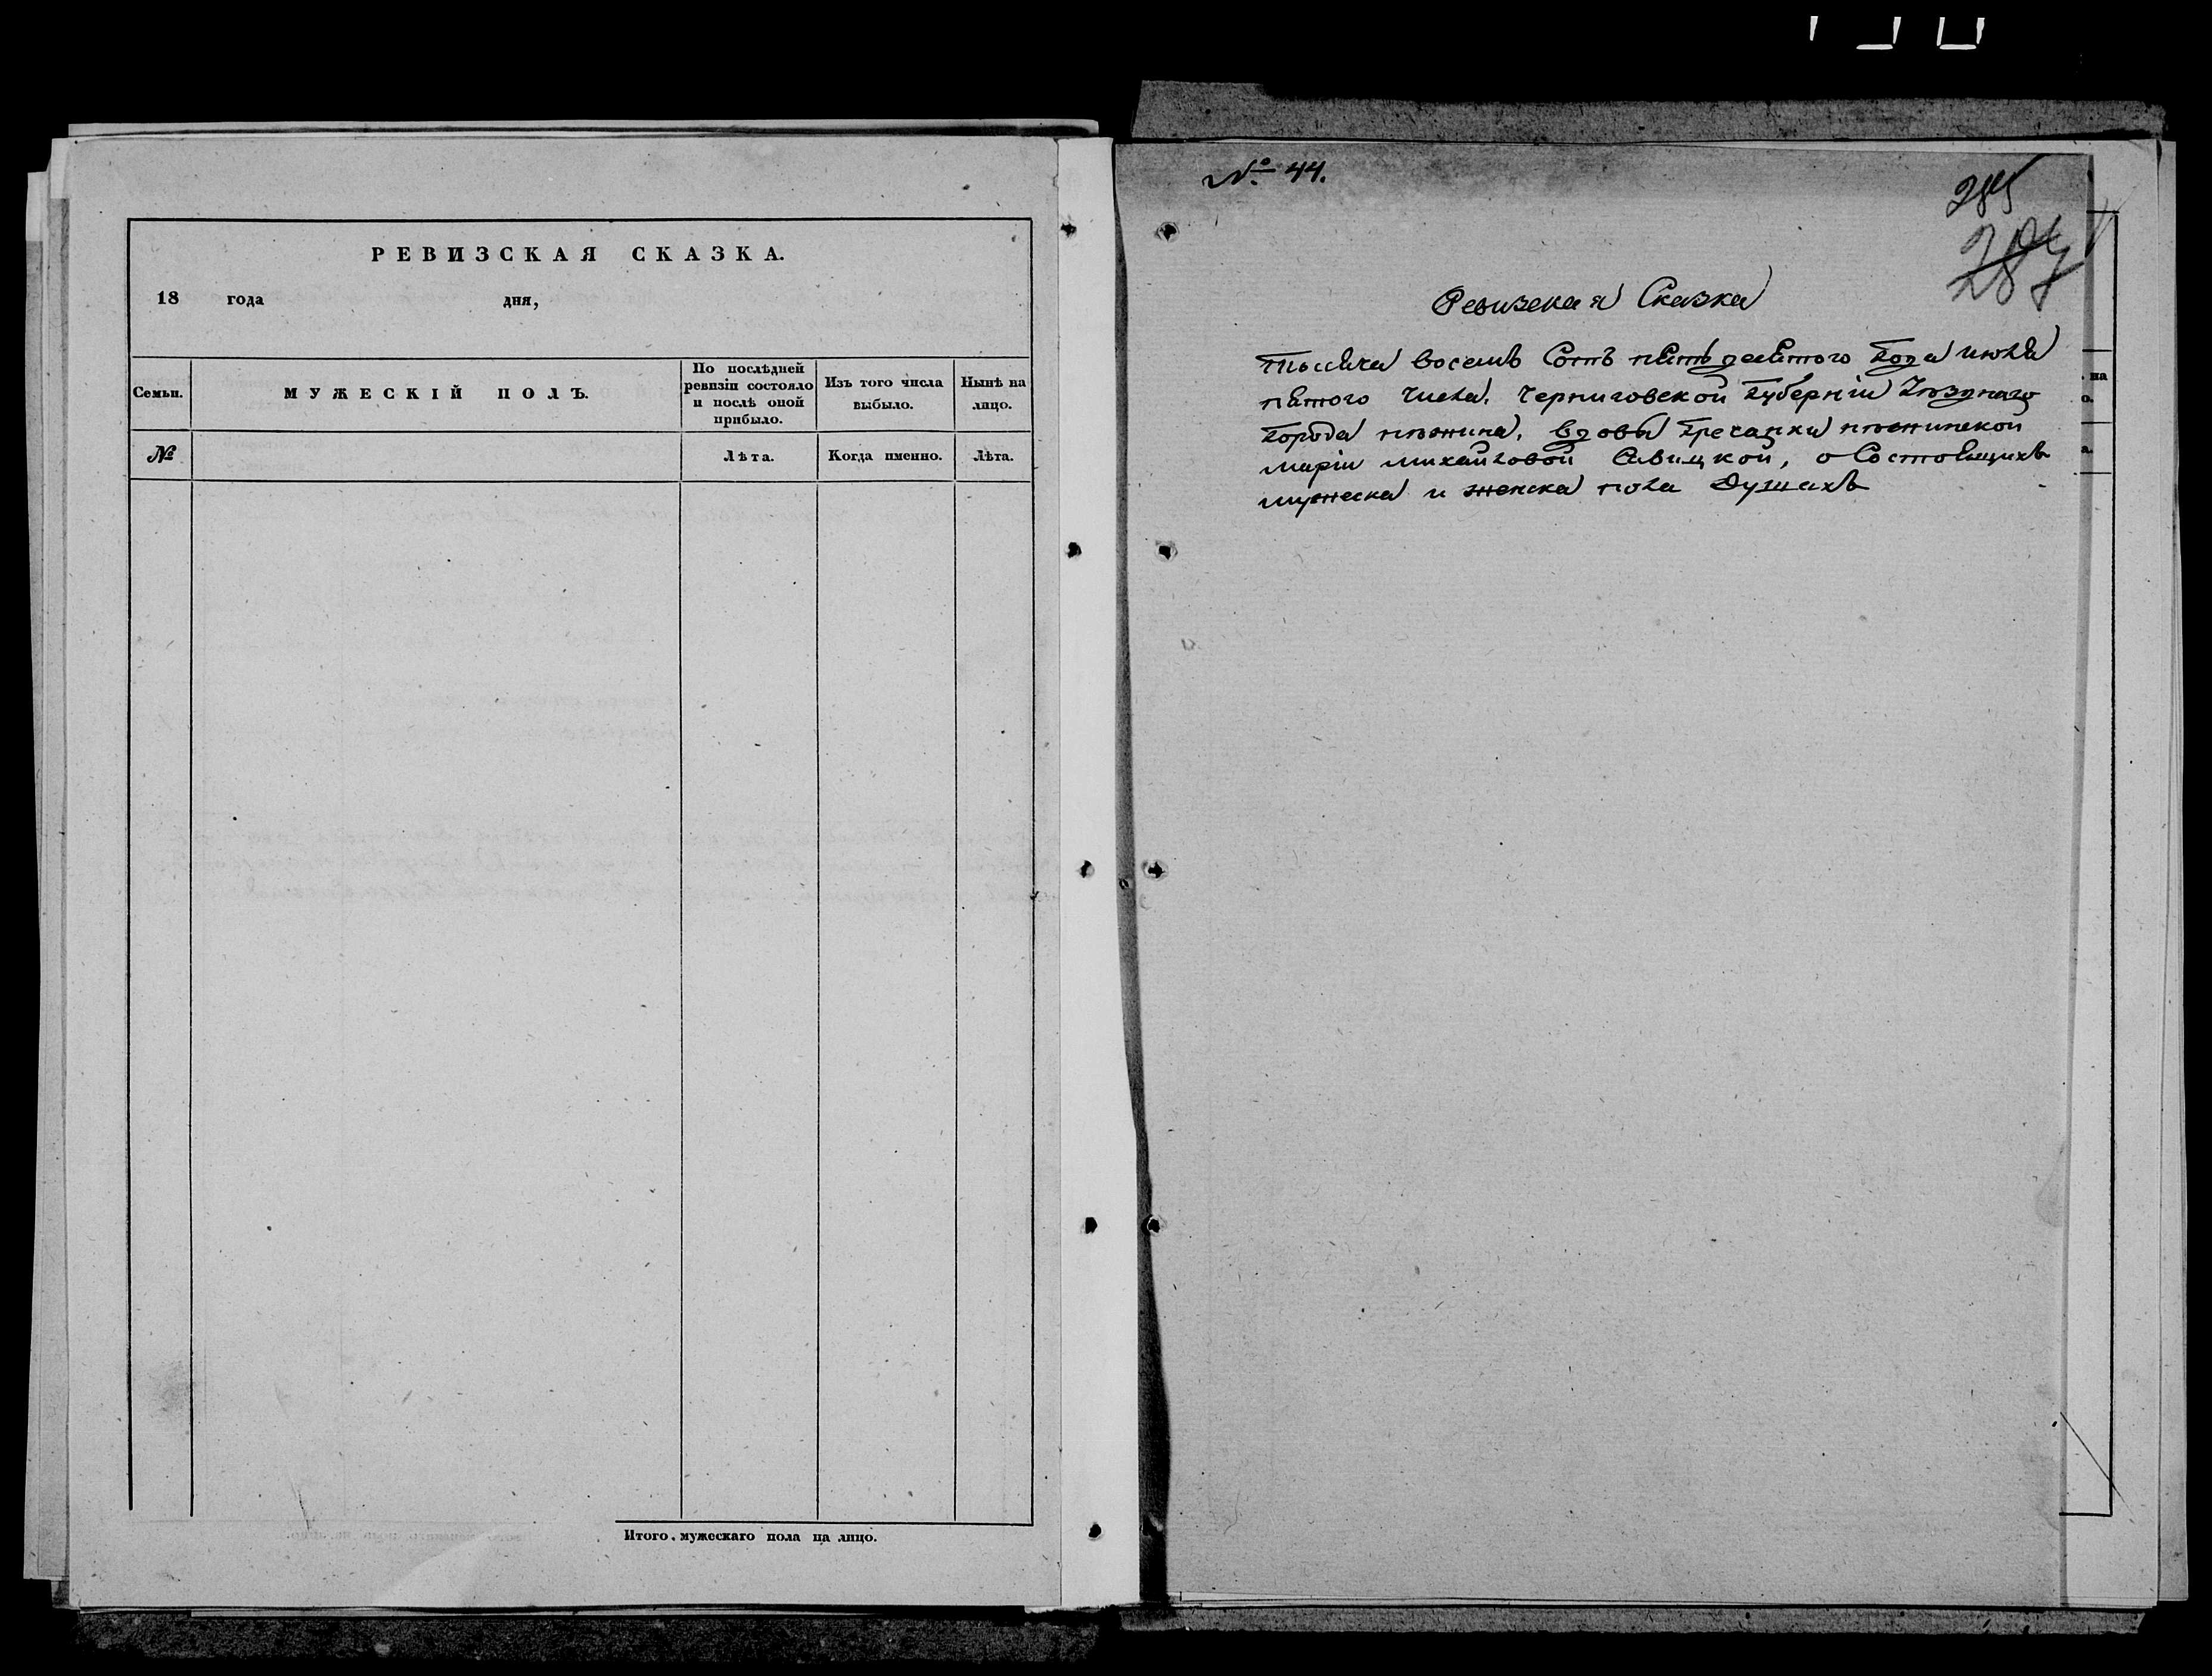 РЕВИЗСКАЯ СКАЗКА.
18 года дня,
Семьи.
МУЖЕСКІЙ ПОЛЪ.
По послѣдней
ревизіи состояло
и послѣ оной
прибыло.
Изъ того числа
выбыло.
Нынѣ на
лицо.
№
Лѣта.
Когда именно.
Лѣта.
Итого мужескаго пола на лицо.
№ 44.
285
287
Ревизская Сказка
тысяча восемь Сотъ пятьдесятого Года июля
пятого числа, Черниговской Губерніи Уезднаго
Города нѣжина, вдовы Гречанки нѣжинской
маріи михайловой Савицкой, о Состоящихъ
мужеска и женска пола Душахъ
на
о.
а.